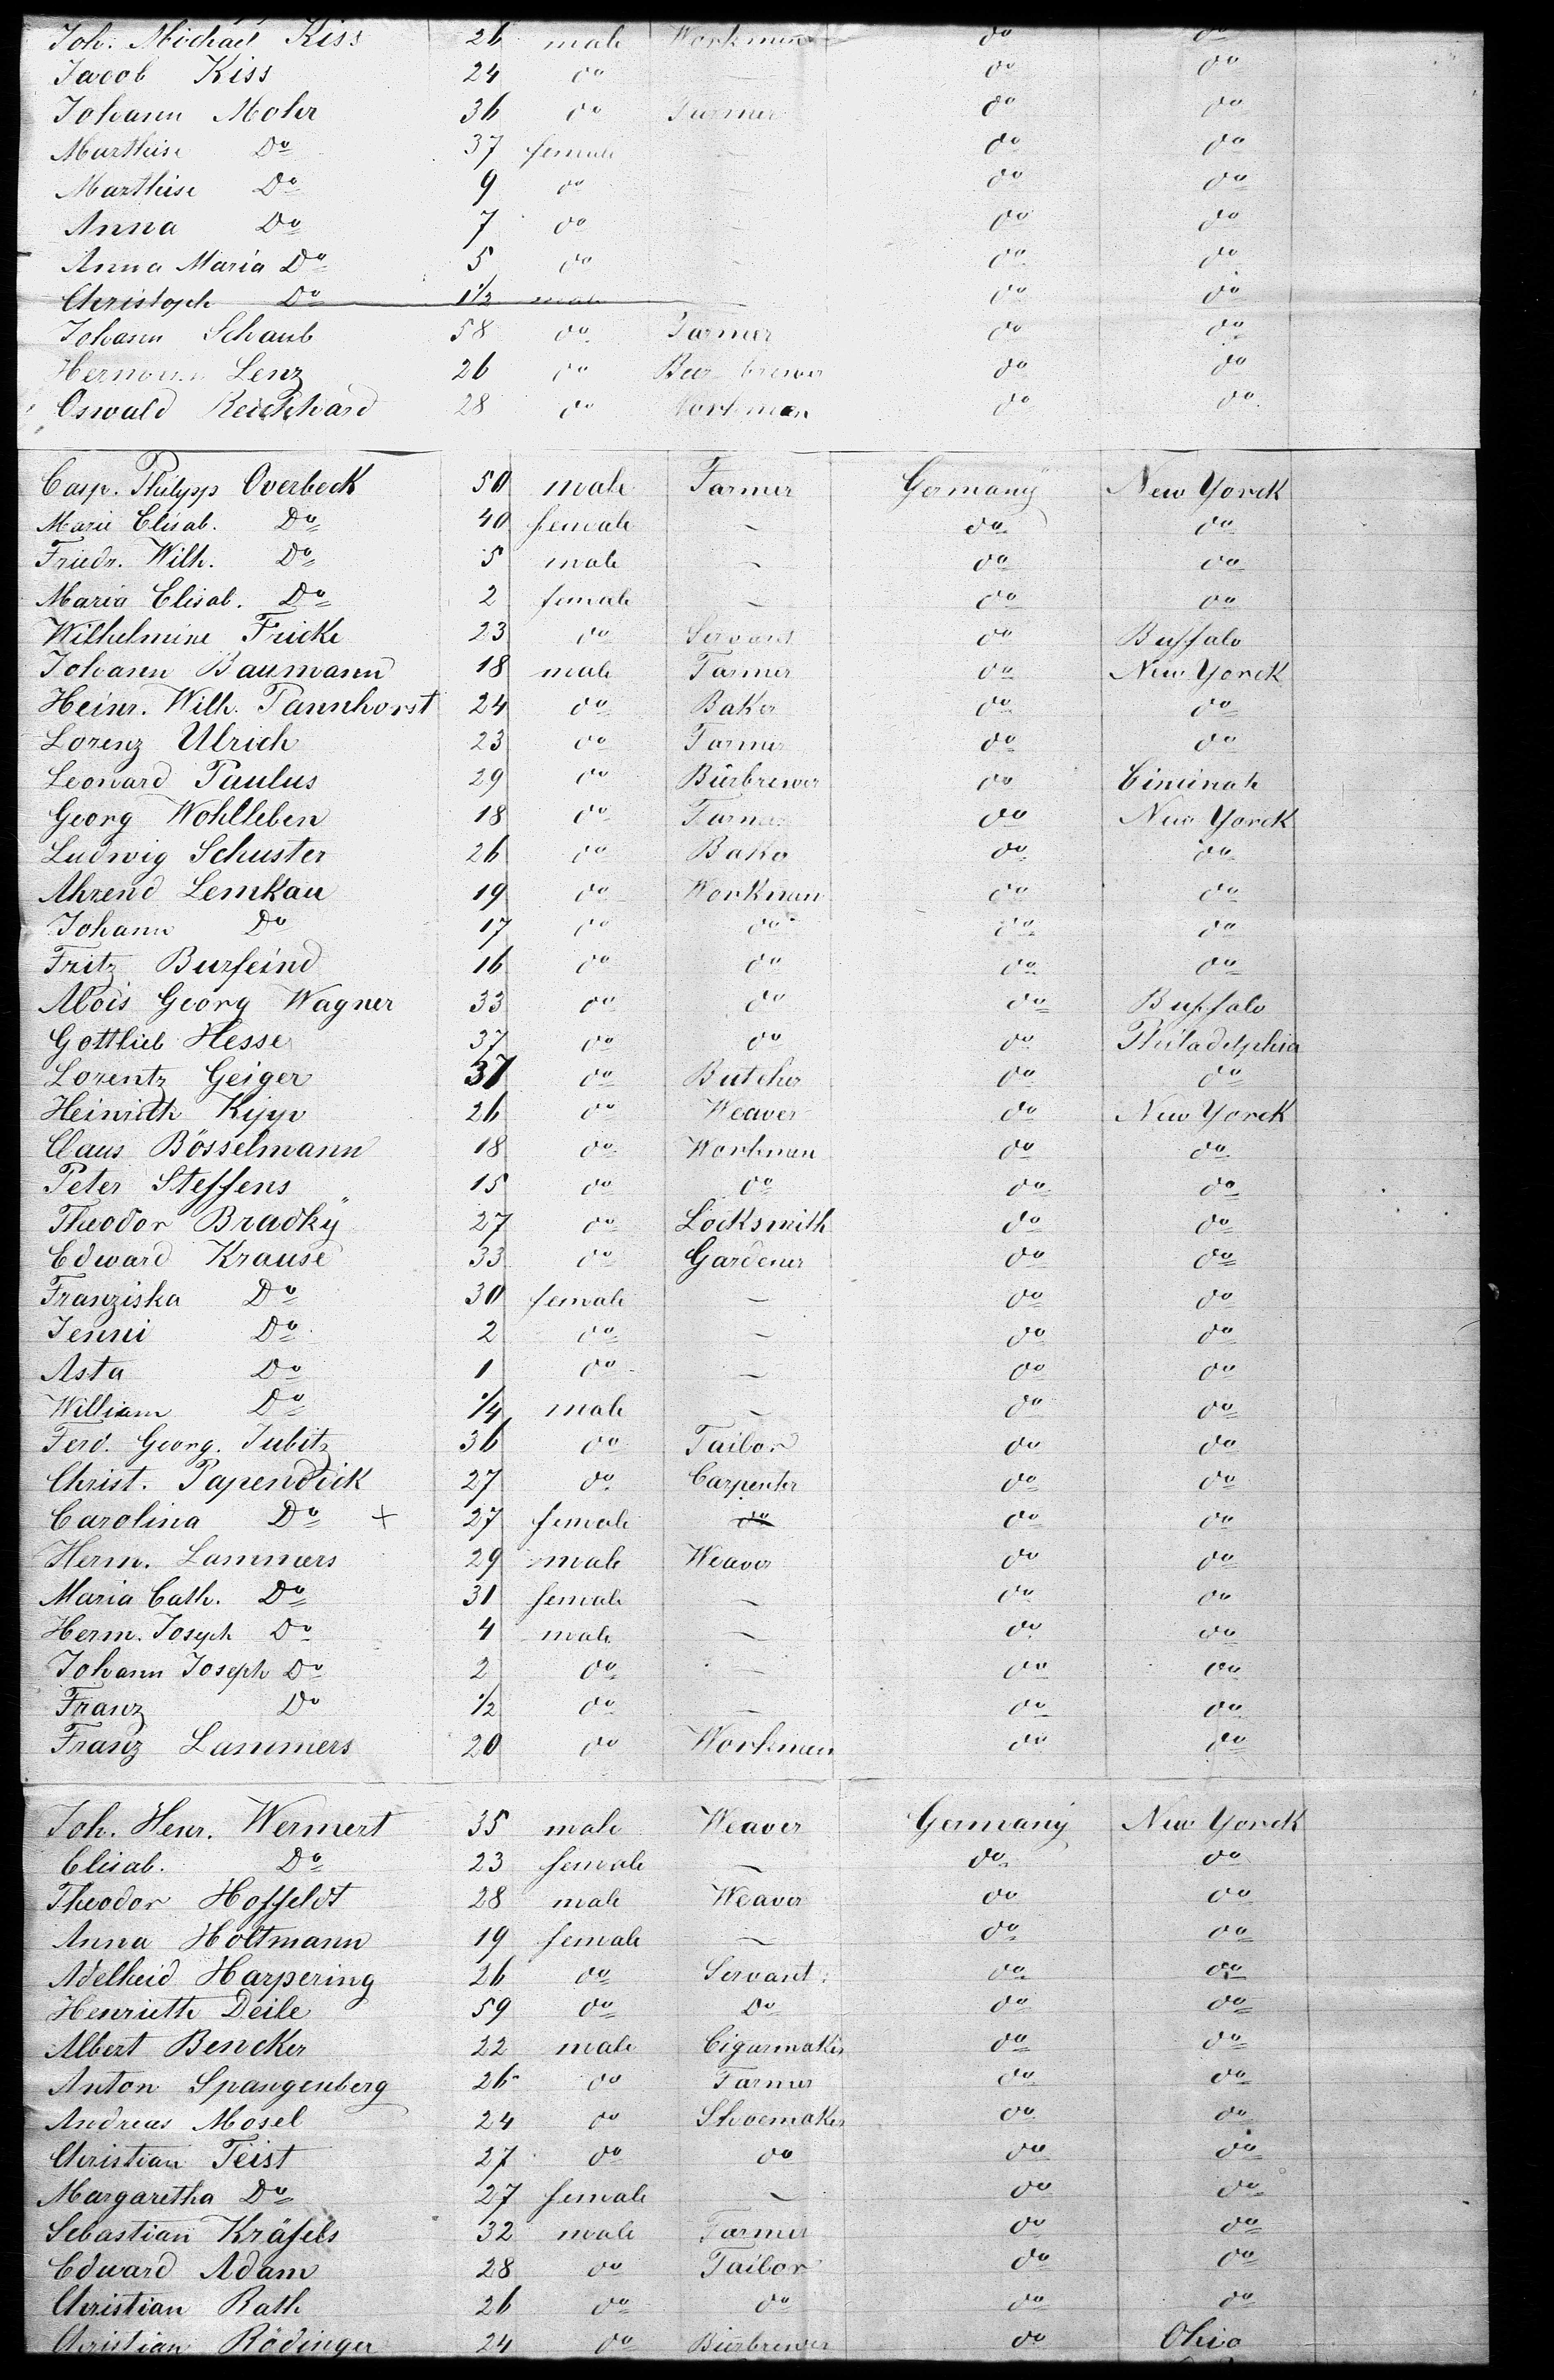 Joh. Michael Kiss 26 male Workman do do
Jacob Kiss 24 do — do do
Johann Mohr 36 do Farmer do do
Marthise Do 37 female — do do
Marthise Do 9 do — do do
Anna Do 7 do — do do
Anna Maria Do 5 do — do do
Christoph Do 1½ male — do do
Johann Schaub 58 do Farmer do do
Hermann Lenz 26 do Beer brewer do do
Oswald Reichhard 28 do Workman do do
Casp. Philipp Overbeck 50 male Farmer Germany New Yorck
Marie Elisab. Do 40 female — do do
Friedr. Wilh. Do 5 male — do do
Maria Elisab. Do 2 female — do do
Wilhelmine Fricke 23 do Servant do Buffalo
Johann Baumann 18 male Farmer do New Yorck
Heinr. Wilh. Tannhorst 24 do Baker do do
Lorenz Ulrich 23 do Farmer do do
Leonard Paulus 29 do Bierbrewer do Cincinati
Georg Wohlleben 18 do Farmer do New Yorck
Ludwig Schuster 26 do Baker do do
Ahrend Lemkau 19 do Workman do do
Johann Do 17 do do do do
Fritz Burfeind 16 do do do do
Alois Georg Wagner 33 do do do Buffalo
Gottlieb Hesse 37 do do do Philadelphia
Lorentz Geiger 37 do Butcher do do
Heinrich Kipp 26 do Weaver do New Yorck
Claus Bösselmann 18 do Workman do do
Peter Steffens 15 do do do do
Theodor Bradky 27 do Locksmith do do
Edward Krause 33 do Gardener do do
Franziska Do 30 female — do do
Jenni Do 2 do — do do
Asta Do 1 do — do do
William Do ¼ male — do do
Ferd. Georg. Jubitz 36 do Tailor do do
Christ. Papendick 27 do Carpenter do do
Carolina Do × 27 female do do do
Herm. Lammers 29 male Weaver do do
Maria Cath. Do 31 female — do do
Herm. Joseph Do 4 male — do do
Johann Joseph Do 2 do — do do
Franz Do ½ do — do do
Franz Lammers 20 do Workman do do
Joh. Henr. Wermert 35 male Weaver Germany New Yorck
Elisab. Do 23 female — do do
Theodor Hoffeldt 28 male Weaver do do
Anna Holtmann 19 female — do do
Adelheid Harpering 26 do Servant do do
Henrieth Deile 59 do Do do do
Albert Bencker 22 male Cigarmaker do do
Anton Spangenberg 26 do Farmer do do
Andreas Mosel 24 do Shoemaker do do
Christian Teist 27 do do do do
Margaretha Do 27 female — do do
Sebastian Kräfels 32 male Farmer do do
Edward Adam 28 do Tailor do do
Christian Rath 26 do do do do
Christian Rödinger 24 do Bierbrewer do Ohio